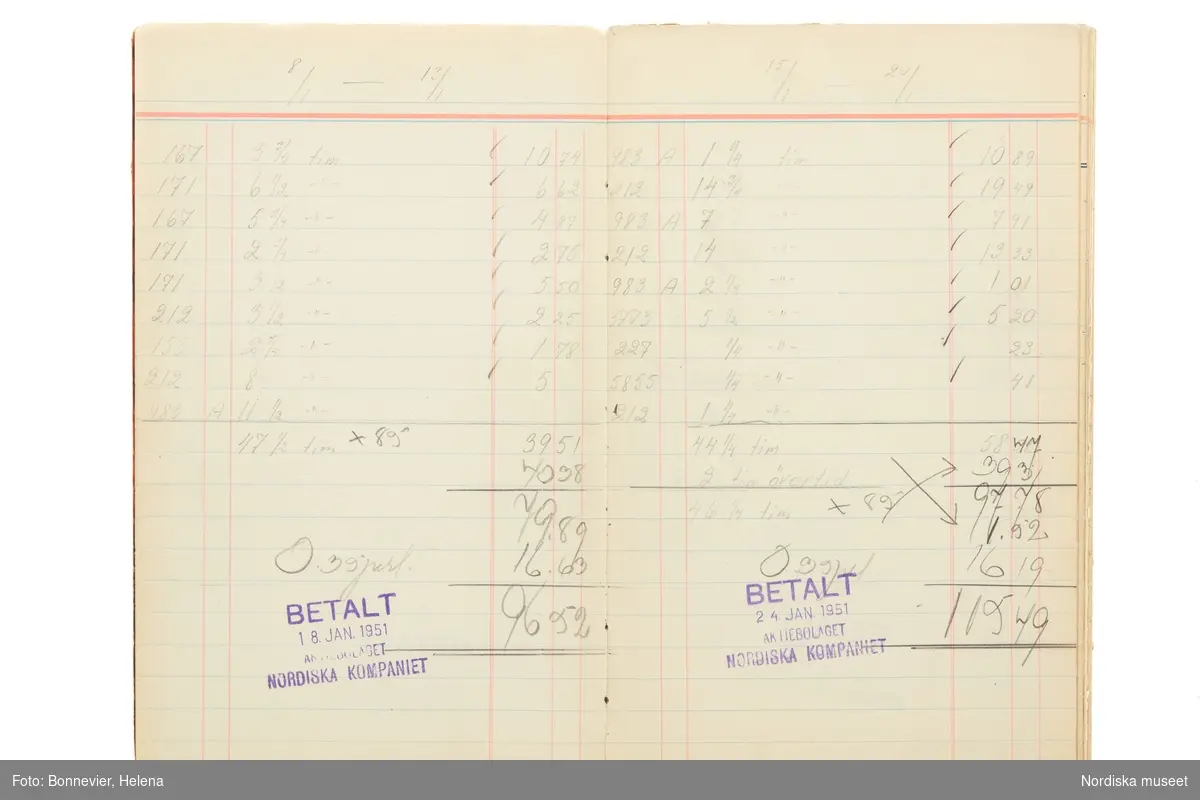 8/1 — 13/1
167 3 3/4 tim 10 74
171 6 1/2 -"- 6 62
167 5 1/4 -"- 4 89
171 2 1/4 -"- 2 75
171 3 1/2 -"- 5 50
212 3 1/2 -"- 2 25
-"- 1 78
212 8 -"- 5
A 11 1/2 -"-
47 1/2 tim × 85 39 51
40 38
79.89
0.35 16.63
96 52
BETALT
18. JAN. 1951
AKTIEBOLAGET
NORDISKA KOMPANIET
15/1 — 20/1
983 A 1 tim 10 89
212 14 3/4 -"- 19 49
983 A 7 -"- 7 91
212 14 -"- 13 33
983 A 2 1/4 -"- 1 01
5 1/2 -"- 5 20
227 1/4 -"- 23
5855 1/4 -"- 41
212 1 1/4 -"-
44 1/4 tim 58 47
2 tim övertid 39 31
46 1/4 tim × 85 97 78
1.52
0 35 16 19
115 49
BETALT
24. JAN. 1951
AKTIEBOLAGET
NORDISKA KOMPANIET
Foto: Bonnevier, Helena
Nordiska museet